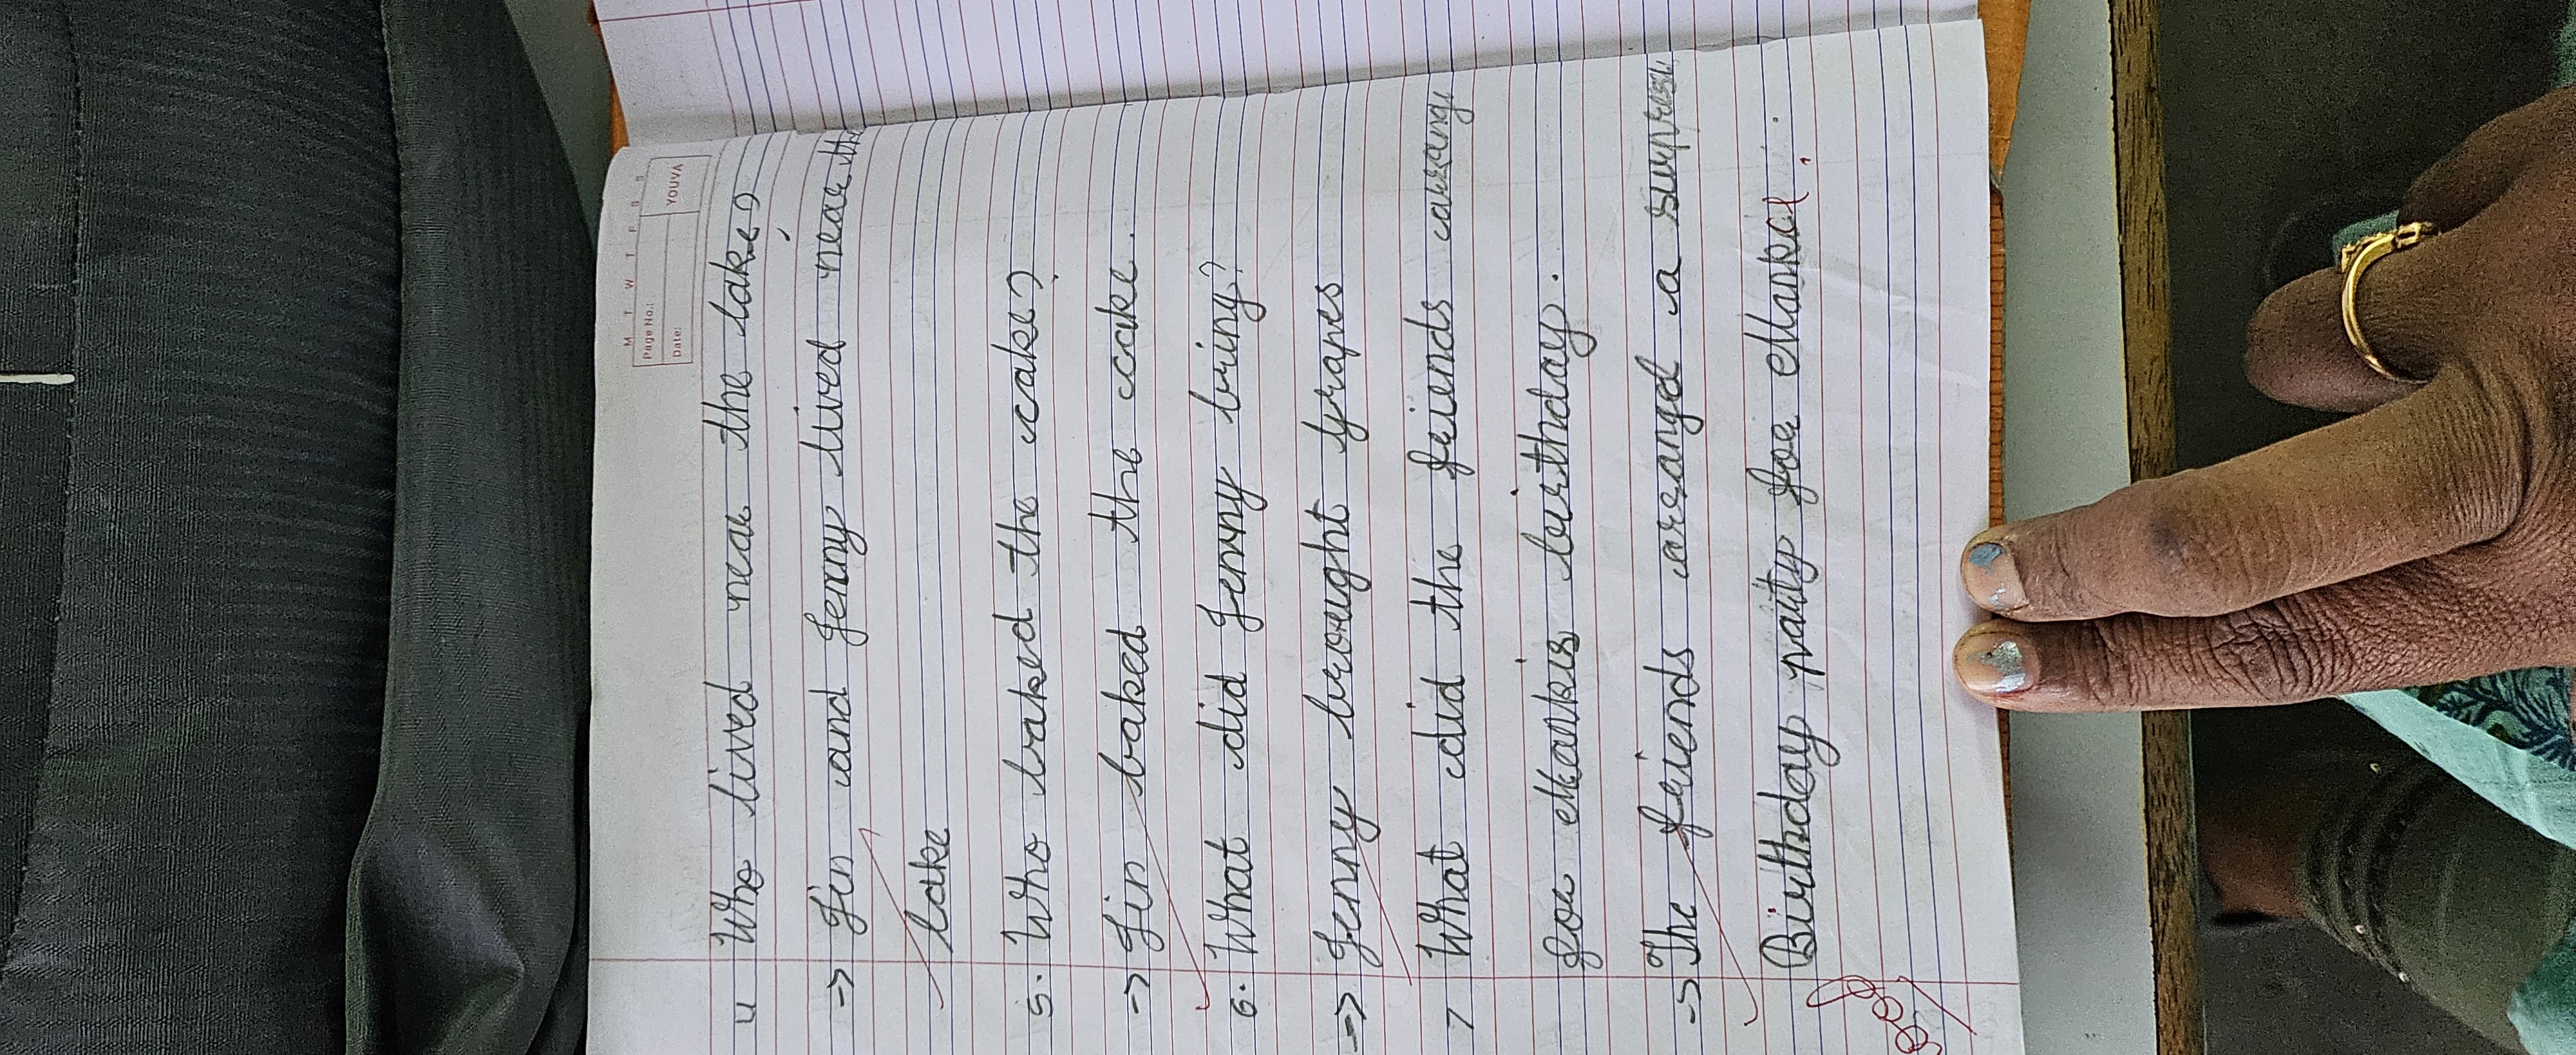 M T W T F S S
Page No.:
Date:
YOUVA
4 Who lived near the lake?
-> Jin and Jenny lived near the
lake
5. Who baked the cake?
-> Jin baked the cake.
6. What did Jenny bring?
-> Jenny brought grapes
7 What did the friends arrange
for Manki's birthday.
-> The friends arranged a
Birthday party for